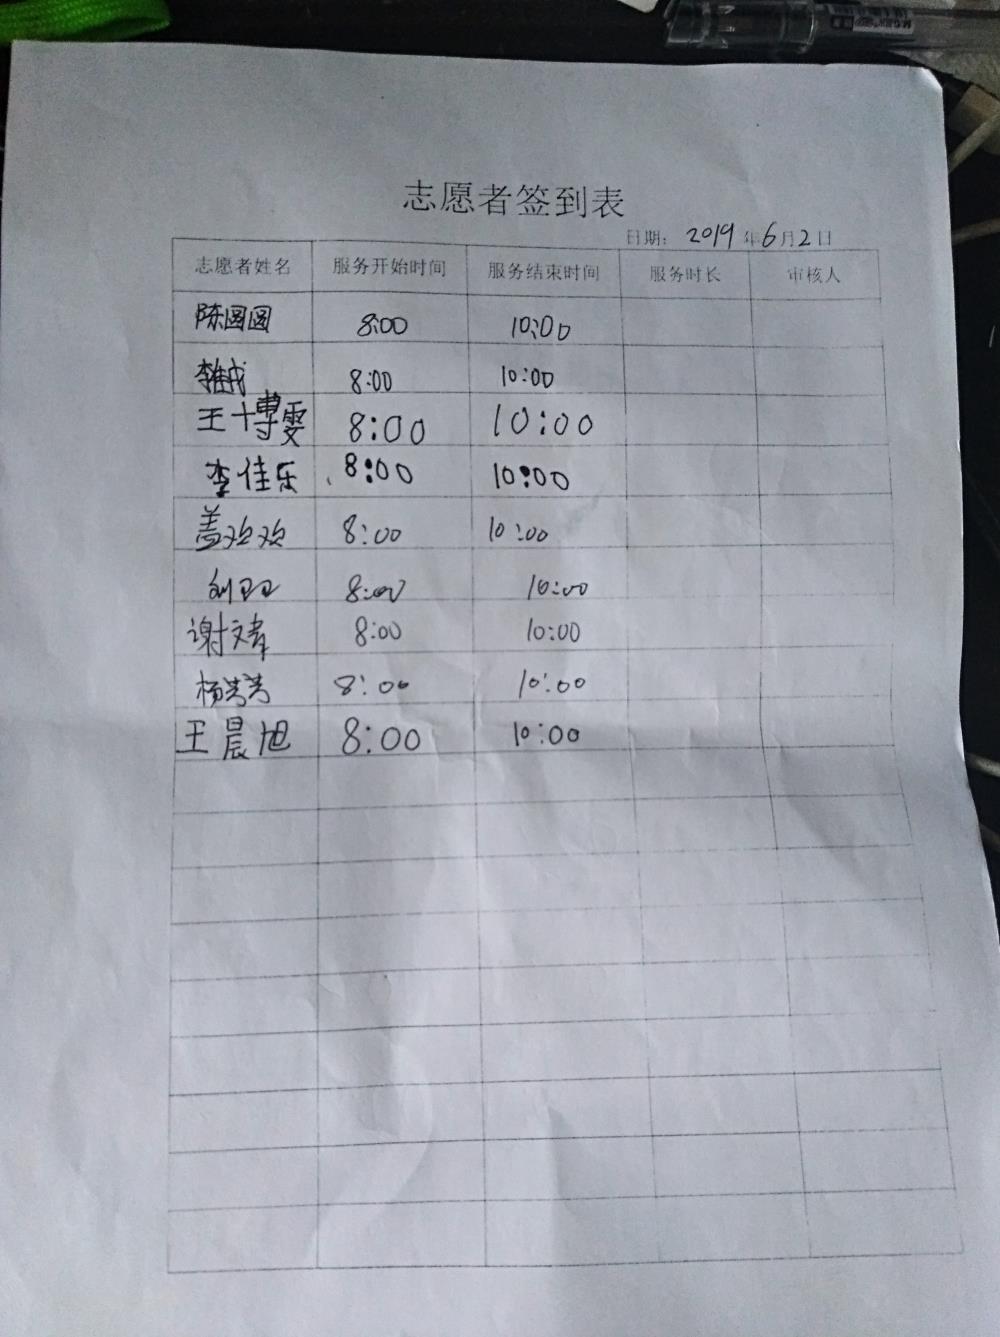 志愿者签到表
日期： 2019 年 6 月 2 日
志愿者姓名 服务开始时间 服务结束时间 服务时长 审核人
陈圆圆 8:00 10:00
8:00 10:00
王博雯 8:00 10:00
李佳乐 8:00 10:00
盖欢欢 8:00 10:00
8:00 10:00
谢文 8:00 10:00
杨芳芳 8:00 10:00
王晨旭 8:00 10:00